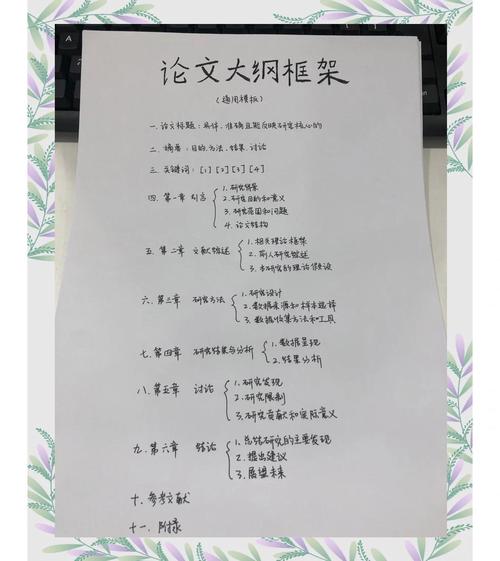 论文大纲框架
(通用模板)
一.论文标题:具体、准确且能反映研究核心的
二.摘要:目的.方法、结果.讨论
三.关键词:[1][2][3][4]
四.第一章 引言
1.研究背景
2.研究目的和意义
3.研究范围和问题
4.论文结构
五.第二章 文献综述
1.相关理论框架
2.前人研究综述
3.本研究的理论假设
六.第三章 研究方法
1.研究设计
2.数据来源和样本选择
3.数据收集方法和工具
七.第四章 研究结果与分析
1.数据呈现
2.结果分析
八.第五章 讨论
1.研究发现
2.研究限制
3.研究贡献和实际意义
九.第六章 结论
1.总结研究的主要发现
2.提出建议
3.展望未来
十.参考文献
十一.附录